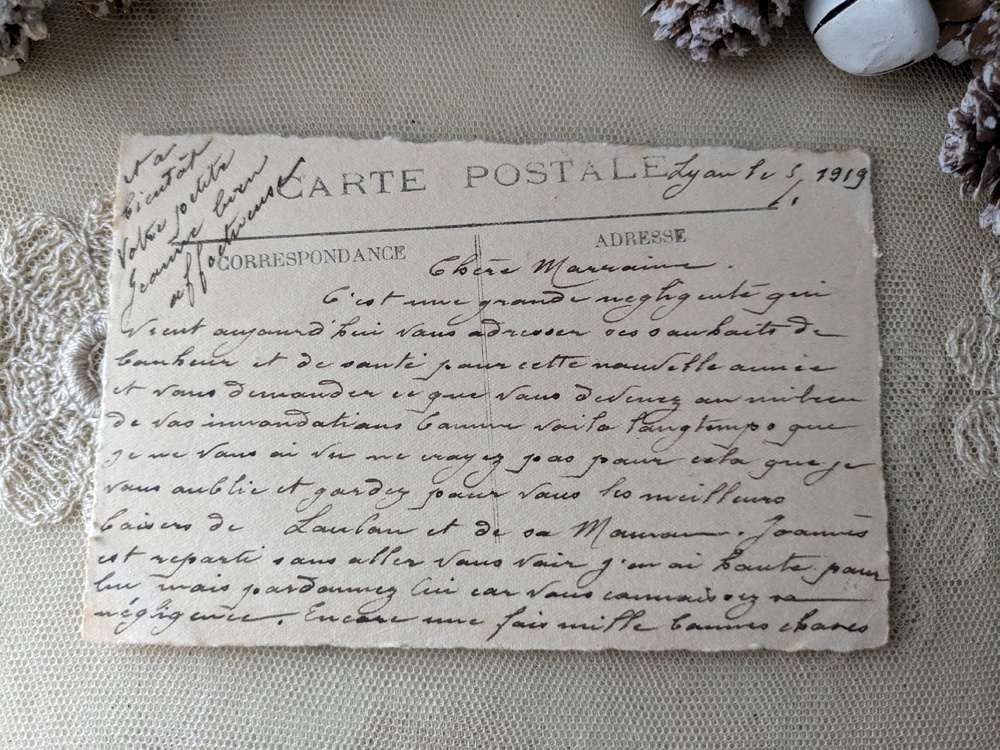 CARTE POSTALE
Lyon le 5 1919
CORRESPONDANCE
ADRESSE
Chère Marraine.
C'est une grande negligente qui
vient aujourd'hui vous adresser ses souhaits de
bonheur et de santé pour cette nouvelle année
et vous demander ce que vous devenez au milieu
de vos innondations comme voila longtemps que
je ne vous ai vu ne croyez pas pour cela que je
vous oublie et gardez pour vous les meilleurs
baisers de et de sa Maman. Joannès
est reparti sans aller vous voir j'en ai honte pour
lui mais pardonnez lui car vous connaissez sa
négligence. Encore une fois mille bonnes choses
et a
bientôt
Votre petite
Jeanne bien
affectueuse